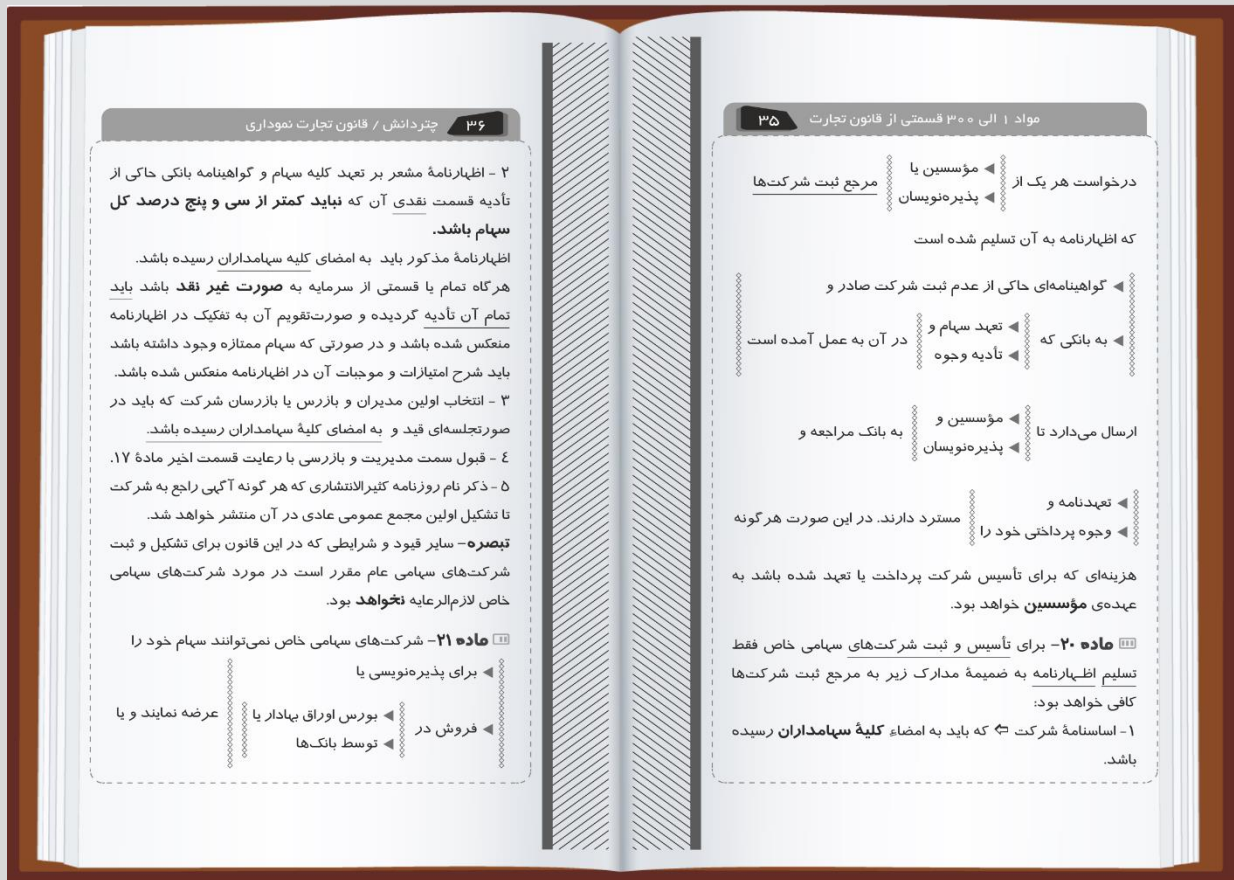 مواد ۱ الی ۳۰۰ قسمتی از قانون تجارت ۳۵
درخواست هر یک از
مؤسسین یا
پذیره‌نویسان
مرجع ثبت شرکت‌ها
که اظهارنامه به آن تسلیم شده است
گواهینامه‌ای حاکی از عدم ثبت شرکت صادر و
به بانکی که
تعهد سهام و
تأدیه وجوه
در آن به عمل آمده است
ارسال می‌دارد تا
مؤسسین و
پذیره‌نویسان
به بانک مراجعه و
تعهدنامه و
وجوه پرداختی خود را
مسترد دارند. در این صورت هرگونه
هزینه‌ای که برای تأسیس شرکت پرداخت یا تعهد شده باشد به
عهده‌ی مؤسسین خواهد بود.
ماده ۲۰- برای تأسیس و ثبت شرکت‌های سهامی خاص فقط
تسلیم اظـهارنامه به ضمیمۀ مدارک زیر به مرجع ثبت شرکت‌ها
کافی خواهد بود:
۱- اساسنامۀ شرکت ⇦ که باید به امضاءِ کلیۀ سهامداران رسیده
باشد.
۳۶ چتردانش / قانون تجارت نموداری
۲ - اظهارنامۀ مشعر بر تعهد کلیه سهام و گواهینامه بانکی حاکی از
تأدیه قسمت نقدی آن که نباید کمتر از سی و پنج درصد کل
سهام باشد.
اظهارنامۀ مذکور باید به امضای کلیه سهامداران رسیده باشد.
هرگاه تمام یا قسمتی از سرمایه به صورت غیر نقد باشد باید
تمام آن تأدیه گردیده و صورت‌تقویم آن به تفکیک در اظهارنامه
منعکس شده باشد و در صورتی که سهام ممتازه وجود داشته باشد
باید شرح امتیازات و موجبات آن در اظهارنامه منعکس شده باشد.
۳ - انتخاب اولین مدیران و بازرس یا بازرسان شرکت که باید در
صورتجلسه‌ای قید و به امضای کلیۀ سهامداران رسیده باشد.
٤ - قبول سمت مدیریت و بازرسی با رعایت قسمت اخیر مادۀ ۱۷.
۵ - ذکر نام روزنامه کثیرالانتشاری که هر گونه آگهی راجع به شرکت
تا تشکیل اولین مجمع عمومی عادی در آن منتشر خواهد شد.
تبصره- سایر قیود و شرایطی که در این قانون برای تشکیل و ثبت
شرکت‌های سهامی عام مقرر است در مورد شرکت‌های سهامی
خاص لازم‌الرعایه نخواهد بود.
ماده ۲۱- شرکت‌های سهامی خاص نمی‌توانند سهام خود را
برای پذیره‌نویسی یا
فروش در
بورس اوراق بهادار یا
توسط بانک‌ها
عرضه نمایند و یا